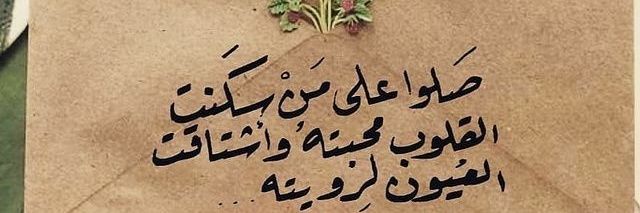 صَلوا على مَنْ سكَنت
القلوب محبتهُ وأشتاقت
العيُون لِرويته...